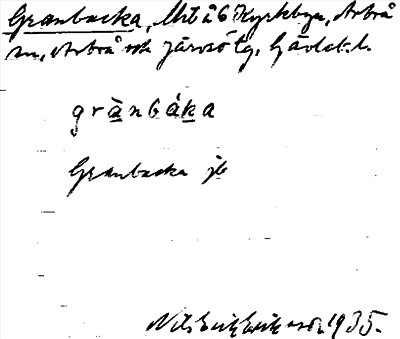 Granbacka, Mtå 6 Kyrkbyn, Arbrå
sn, Arbrå och Järvsö tg, Gävleb. l.
grànbáka
Granbacka jb
Nils Erik Eriksson 1935.